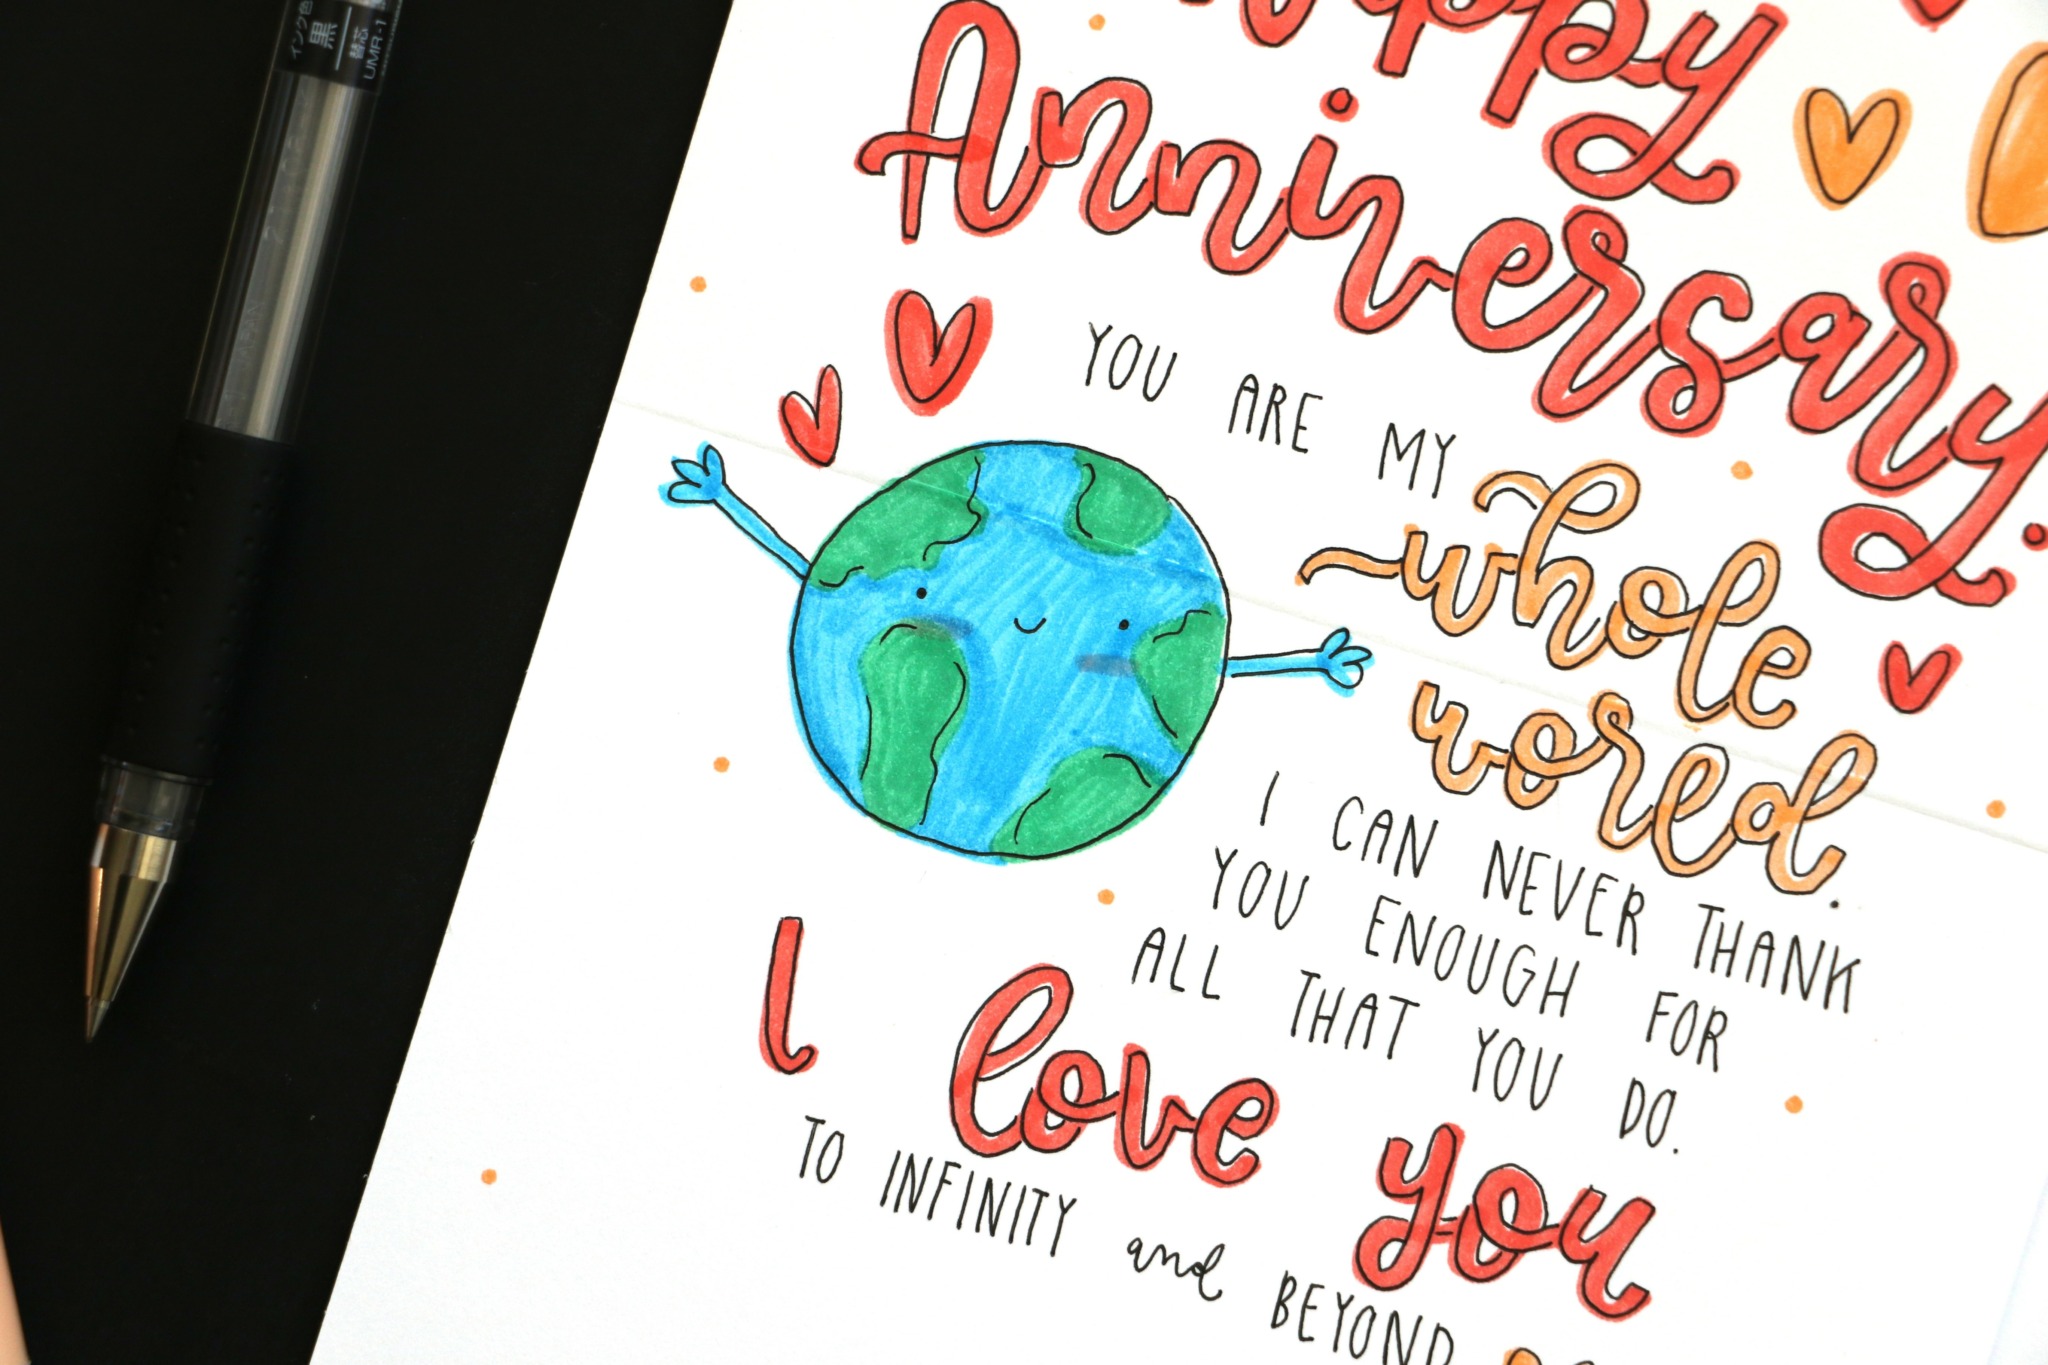 インク色
黒
替芯
UMR-1
Happy
Anniversary.
YOU ARE MY
whole
world.
I CAN NEVER THANK
YOU ENOUGH FOR
ALL THAT YOU DO.
I love you
TO INFINITY and BEYOND